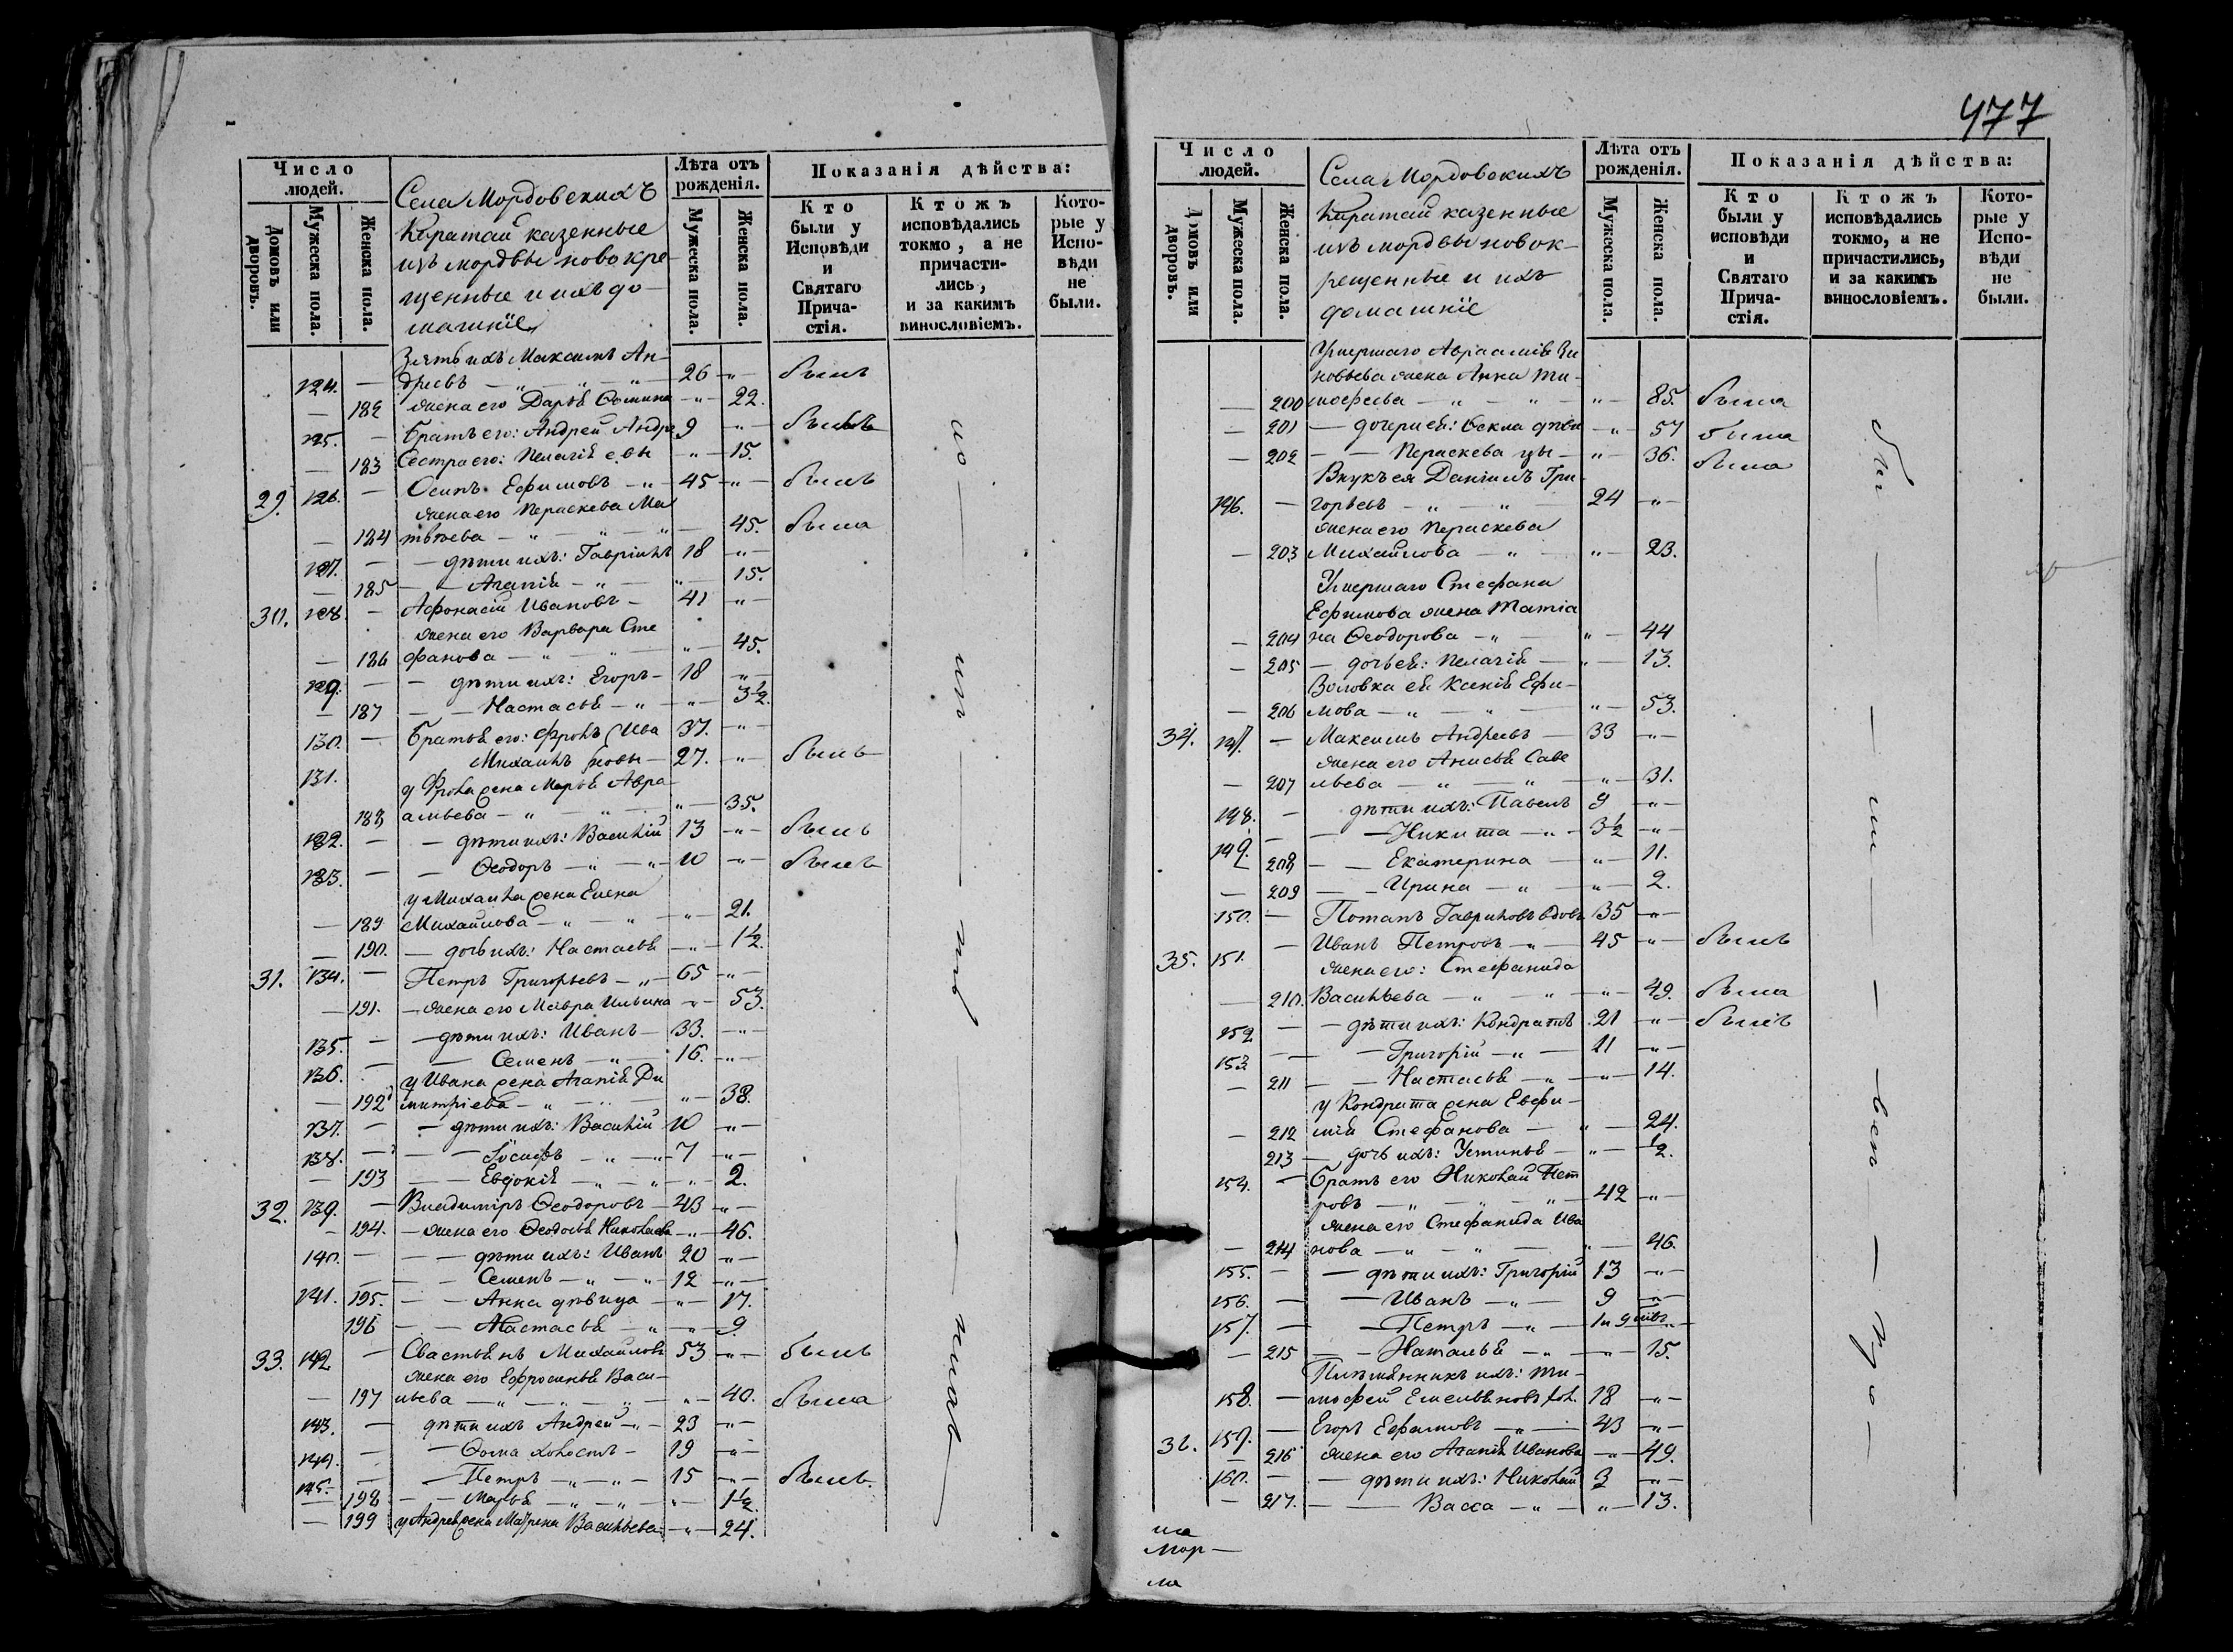 Число людей.
Домовъ или дворовъ.
Мужеска пола.
Женска пола.
Села Мордовскихъ
Каратай казенные
изъ мордвы новокре-
щенные и ихъ до-
машніе
Лѣта отъ рожденія.
Мужеска пола.
Женска пола.
Показанія дѣйства:
Кто были у Исповѣди и Святаго Прича-стія.
Ктожъ исповѣдались токмо, а не причасти-лись, и за какимъ винословіемъ.
Кото-рые у Испо-вѣди не были.
Зять ихъ Максимъ Ан-
124. — дреевъ — „ — „ — 26 — „ — былъ
— 182 жена его Дарья Ѳомина — „ — 22.
125. — братъ его: Андрей Андре 9 — „ — былъ
— 183 Сестра его: Пелагія евы — „ — 15.
29. 126. — Осипъ Ефимовъ — „ — 45 — „ — былъ
жена его Параскева Ма
— 184 твѣева — „ — „ — „ 45. была
127. — — дѣти ихъ: Гавріилъ 18 — „ —
— 185 — — Агапія — „ — „ — 15.
30. 128. — Афонасій Ивановъ — 41 — „ —
жена его Варвара Сте
— 186 фанова — „ — „ — „ — 45.
129. — — дѣти ихъ: Егоръ — 18 — „ —
— 187 — — Настасья — „ — „ — 3½.
130. — братья его: Фролъ Ива 37. — „ —
131. Михаилъ новы — 27. — „ — былъ
у Фрола жена Марья Авра
188 амьева — „ — „ — „ — 35.
132. — — дѣти ихъ: Василій 13 — „ — былъ
133. — — Ѳеодоръ — „ — „ — 10 — „ — былъ
у Михаила жена Елена
— 189 Михайлова — „ — „ — „ — 21.
— 190. — дочь ихъ: Настасья — „ — 1½.
31. 134. — Петръ Григорьевъ — „ — 65 — „ —
— 191. — жена его Мавра Ильина — „ — 53.
135. — — дѣти ихъ: Иванъ — 33. — „ —
136. — — Семенъ — „ — 16. — „ —
у Ивана жена Агапія Ди
— 192 митріева — „ — „ — „ — 38.
137. — — дѣти ихъ: Василій 10 — „ —
138. — — Іосифъ — „ — „ 7 — „ —
— 193 — — Евдокія — „ — „ — „ — 2.
32. 139. — Владиміръ Ѳеодоровъ — 43 — „ —
— 194. — жена его Ѳеодосья Николаева — „ — 46.
140. — — — дѣти ихъ: Иванъ 20 — „ —
141. — — — Семенъ — „ — „ — 12 — „ —
195. — — Анна дѣвица — „ — 17.
196 — — Настасья — „ — „ — 9.
33. 142 — Севастьянъ Михайловъ 53 — „ — былъ
жена его Ефросинья Васи-
— 197 льева — „ — „ — „ — „ — 40. была
143. — дѣти ихъ Андрей — „ — 23 — „ —
144. — — Ѳома холостъ — 19 — „ —
145. — — Петръ — „ — „ — 15 — „ — былъ.
— 198 — — Марья — „ — „ — „ — 1½.
— 199 у Андрея жена Матрена Васильева — „ — 24.
477
Число людей.
Домовъ или дворовъ.
Мужеска пола.
Женска пола.
Села Мордовскихъ
Каратай казенные
изъ мордвы новок-
рещенные и ихъ
домашніе
Лѣта отъ рожденія.
Мужеска пола.
Женска пола.
Показанія дѣйства:
Кто были у исповѣди и Святаго Прича-стія.
Ктожъ исповѣдались токмо, а не причастились, и за какимъ винословіемъ.
Кото-рые у Испо-вѣди не были.
Умершаго Авраамія Зи
новьева жена Анна Ти-
— 200 мофеева — „ — „ — „ — 85. была
— 201 — дочери ея: Ѳекла дѣви — „ — 57 была
— 202 — — Параскева цы — „ — 36. была
Внукъ ея Даніилъ Гри-
146. — горьевъ — „ — „ — 24 — „ —
жена его Параскева
— 203 Михайлова — „ — „ — 23.
Умершаго Стефана
Ефимова жена Татіа
— 204 на Ѳеодорова — „ — „ — 44
— 205 — дочь ея: Пелагія — „ — 13.
Золовка ея Ксенія Ефи-
— 206 мова — „ — „ — „ — 53.
34. 147. — Максимъ Андреевъ — 33 — „ —
жена его Анисья Саве
— 207 льева — „ — „ — „ — 31.
148. — дѣти ихъ: Павелъ 9 — „ —
149. — — Никита — „ — 3½ — „ —
208 — — Екатерина — „ — 11.
— 209 — — Ирина — „ — „ — 2.
150. — Потапъ Гавриловъ вдовъ 35 — „ —
35. 151. — Иванъ Петровъ — „ — 45 — „ — былъ
жена его: Стефанида
— 210. Васильева — „ — „ — „ — 49. была
152 — — дѣти ихъ: Кондратъ 21 — „ — былъ
153 — — Григорій — „ — 11 — „ —
— 211 — — Настасья — „ — „ — 14.
у Кондрата жена Евфи-
— 212 мія Стефанова — „ — 24.
213 — дочь ихъ: Устинья — „ — ½.
154. — Братъ его Николай Пет
ровъ — „ — „ — „ — 42 — „ —
жена его Стефанида Ива
— 214 нова — „ — „ — „ — 46.
155. — — дѣти ихъ: Григорій 13 — „ —
156. — — Иванъ — „ — 9 — „ —
157. — — Петръ — „ —
— 215 — — Наталья — „ — „ — 15.
Племянникъ ихъ: Ти-
158. — мофей Емельяновъ хол. 18 — „ —
36. 159. — Егоръ Ефимовъ — „ — 43 — „ —
— 216 жена его Агапія Иванова — „ — 49.
160. — — дѣти ихъ: Николай 3 — „ —
— 217. — — Васса — „ — „ — 13.
ла
Мор —
ла